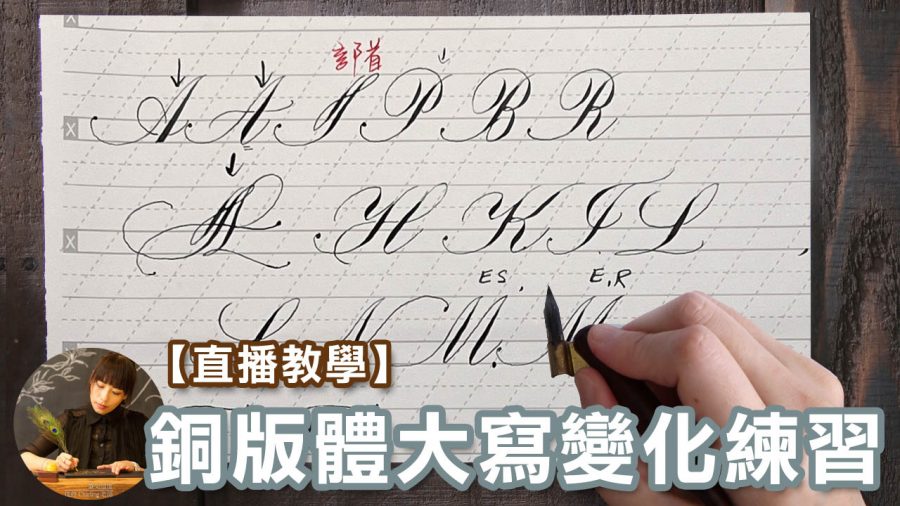 部首
A A S P B R
A H K I L
ES, E,R
L N M. M
【直播教學】
銅版體大寫變化練習